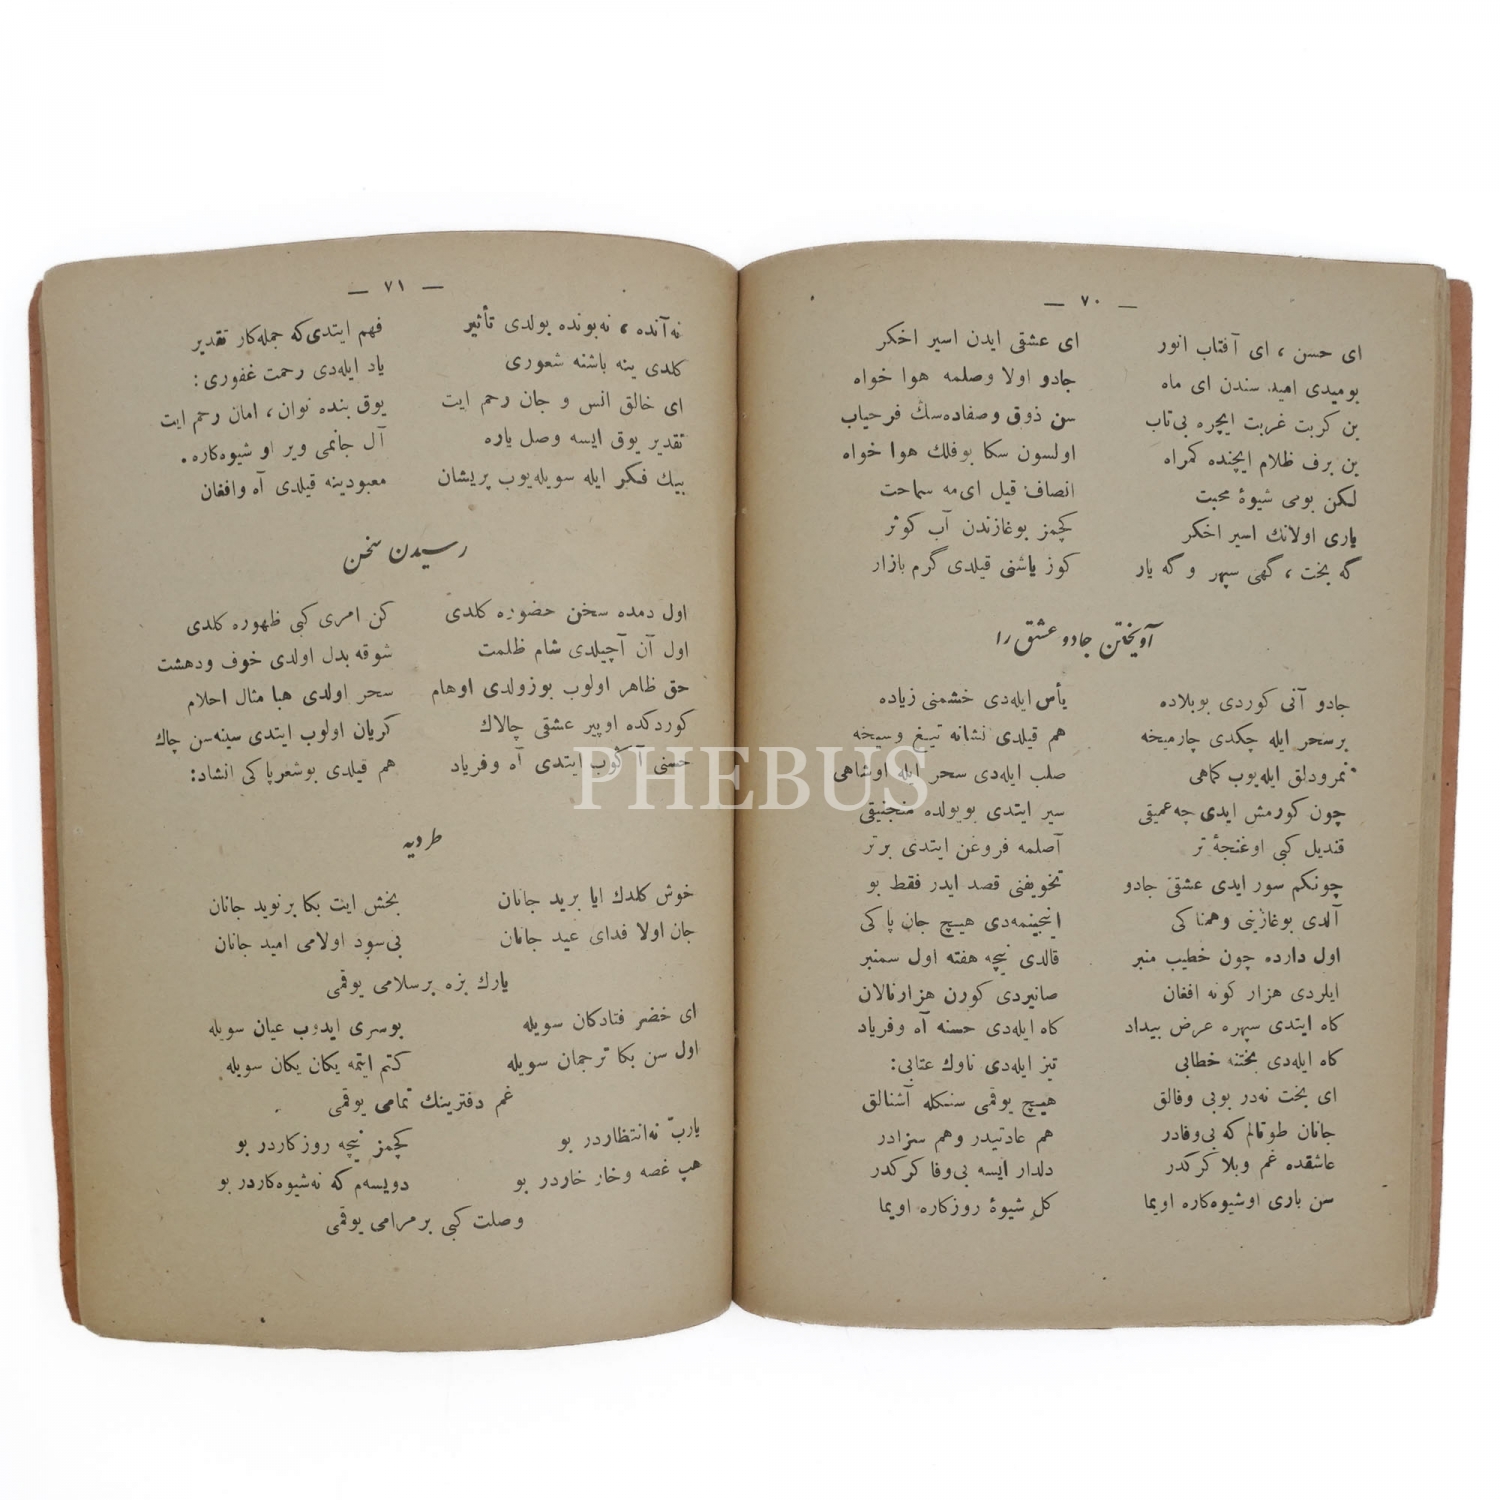 — ٧٠ —
ای حسن ، ای آفتاب انور ای عشقی ایدن اسیر اخکر
بومیدی امید سندن ای ماه جادو اولا وصلمه هوا خواه
بن کربت غربت ایچره بی‌تاب سن ذوق وصفاده‌سك فرحیاب
بن برف ظلام ایچنده کمراه اولسون سکا بوفلك هوا خواه
لکن بومی شیوهٔ محبت انصاف قیل ای مه سماحت
یاری اولانك اسیر اخکر کچمز بوغازندن آب کوثر
گه بخت ، گهی سپهر و گه یار کوز یاشنی قیلدی گرم بازار
آویختن جادو عشق را
جادو آنی کوردی بوبلاده یأس ایله‌دی خشمنی زیاده
برسحر ایله چکدی چارمیخه هم قیلدی نشانه تیغ وسیخه
نمرودلق ایله‌یوب کماهی صلب ایله‌دی سحر ایله اوشاهی
چون کورمش ایدی چه عمیقی سیر ایتدی بویولده منجنیقی
قندیل کبی اوغنجهٔ تر آصلمه فروغن ایتدی برتر
چونکم سور ایدی عشقی جادو تخویفنی قصد ایدر فقط بو
آلدی بوغازینی وهمناکی اینجینمه‌دی هیچ جان پاکی
اول دارده چون خطیب منبر قالدی نیچه هفته اول سمنبر
ایلردی هزار کونه افغان صانیردی کورن هزار نالان
کاه ایتدی سپهره عرض بیداد کاه ایله‌دی حسنه آه وفریاد
کاه ایله‌دی بختنه خطابی تیز ایله‌دی ناوك عتابی :
ای بخت نه‌در بوبی وفالق هیچ یوقمی سنکله آشنالق
جانان طوتالم که بی‌وفادر هم عادتیدر وهم سزادر
عاشقده غم وبلا کرکدر دلدار ایسه بی‌وفا کرکدر
سن باری اوشیوه‌کاره اویما کل شیوهٔ روزکاره اویما
— ٧١ —
نه‌آنده ، نه‌بونده بولدی تأثیر فهم ایتدی‌که جمله‌کار تقدیر
کلدی ینه باشنه شعوری یاد ایله‌دی رحمت غفوری :
ای خالق انس و جان رحم ایت یوق بنده توان ، امان رحم ایت
تقدیر یوق ایسه وصل یاره آل جانمی ویر او شیوه‌کاره .
بیك فکر ایله سویله‌یوب پریشان معبودینه قیلدی آه وافغان
رسیدن سخن
اول دمده سخن حضوره کلدی کن امری کبی ظهوره کلدی
اول آن آچیلدی شام ظلمت شوقه بدل اولدی خوف ودهشت
حق ظاهر اولوب بوزولدی اوهام سحر اولدی هبا مثال احلام
کوردکده اوپیر عشقی چالاك کریان اولوب ایتدی سینه‌سن چاك
حسنی آکوب ایتدی آه وفریاد هم قیلدی بوشعرپاکی انشاد:
طردیه
خوش کلدك ایا برید جانان بخش ایت بکا برنوید جانان
جان اولا فدای عید جانان بی‌سود اولامی امید جانان
یارك بزه برسلامی یوقمی
ای خضر فتادکان سویله بوسری ایدوب عیان سویله
اول سن بکا ترجمان سویله کتم ایتمه یکان یکان سویله
غم دفترینك تمامی یوقمی
یارب نه‌انتظاردر بو کچمز نیچه روزکاردر بو
هپ غصه وخار خاردر بو دویسه‌م که نه‌شیوه‌کاردر بو
وصلت کبی برمرامی یوقمی
PHEBUS